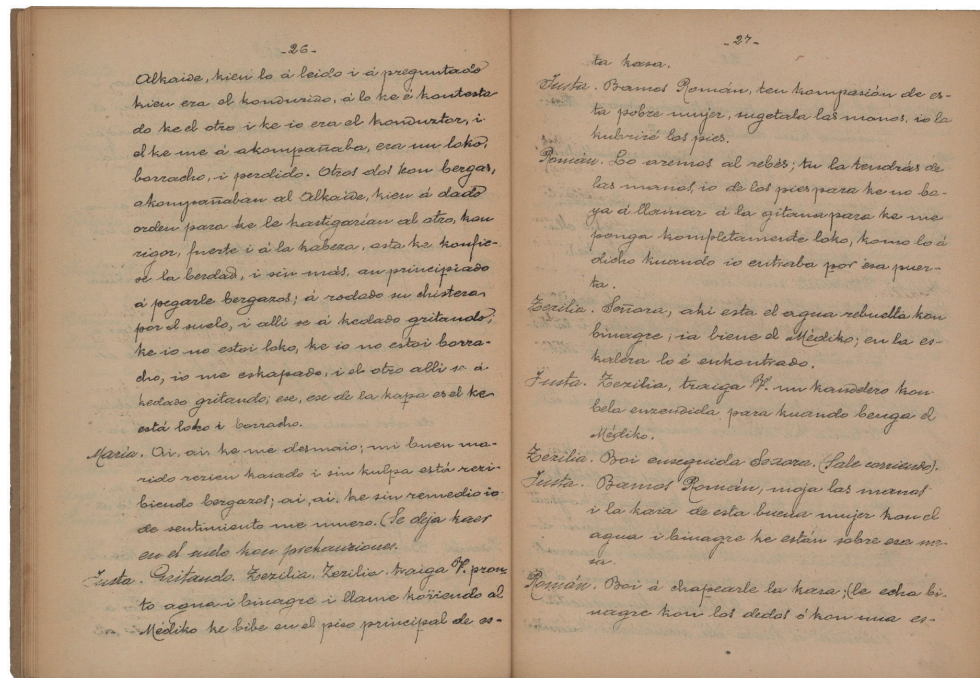 -26-
Alkaide, kien lo á leido i á preguntado
kien era el konduzido, á lo ke é kontesta
do ke el otro i ke io era el konduztor, i
el ke me á akompañaba, era un loko,
borracho, i perdido. Otros dos kon bergas,
akompañaban al Alkaide, kien á dado
orden para ke le kastigarían al otro, kon
rigor, fuerte i á la kabeza, asta ke konfie-
se la berdad, i sin más, an prinzipiado
á pegarle bergazos; á rodado su chistera
por el suelo, i allí se á kedado gritando,
ke io no estoi loko, ke io no estoi borra-
cho, io me eskapado, i el otro allí se á
kedado gritando; ese, ese de la kapa es el ke
está loko i borracho.
María. Ai, ai, ke me desmaio; mi buen ma-
rido rezien kasado i sin kulpa está rezi-
biendo bergazos; ai, ai, ke sin remedio io
de sentimiento me muero. (Se deja kaer
en el suelo kon prekauziones.
Justa. Gritando. Zezilia, Zezilia, traiga V. pron-
to agua i binagre i llame körriendo al
Médiko ke bibe en el piso prinzipal de es-
-27-
ta kasa.
Justa. Bamos Román, ten kompasión de es-
ta pobre mujer, sugetala las manos, io la
kubriré los pies.
Román. Lo aremos al rebés; tu la tendrás de
las manos, io de los pies para ke no ba-
ya á llamar á la gitana para ke me
ponga kompletamente loko, komo lo á
dicho kuando io entraba por esa puer-
ta.
Zezilia. Señora, aki esta el agua rebuelta kon
binagre; ia biene el Médiko; en la es-
kalera lo é enkontrado.
Justa. Zezilia, traiga V. un kandelero kon
bela enzendida para kuando benga el
Médiko.
Zezilia. Boi enseguida Señora. (Sale corriendo).
Justa. Bamos Román, moja las manos
i la kara de esta buena mujer kon el
agua i binagre ke están sobre esa me-
sa.
Román. Boi á chapearle la kara; (le echa bi-
nagre kon los dedos ó kon una es-